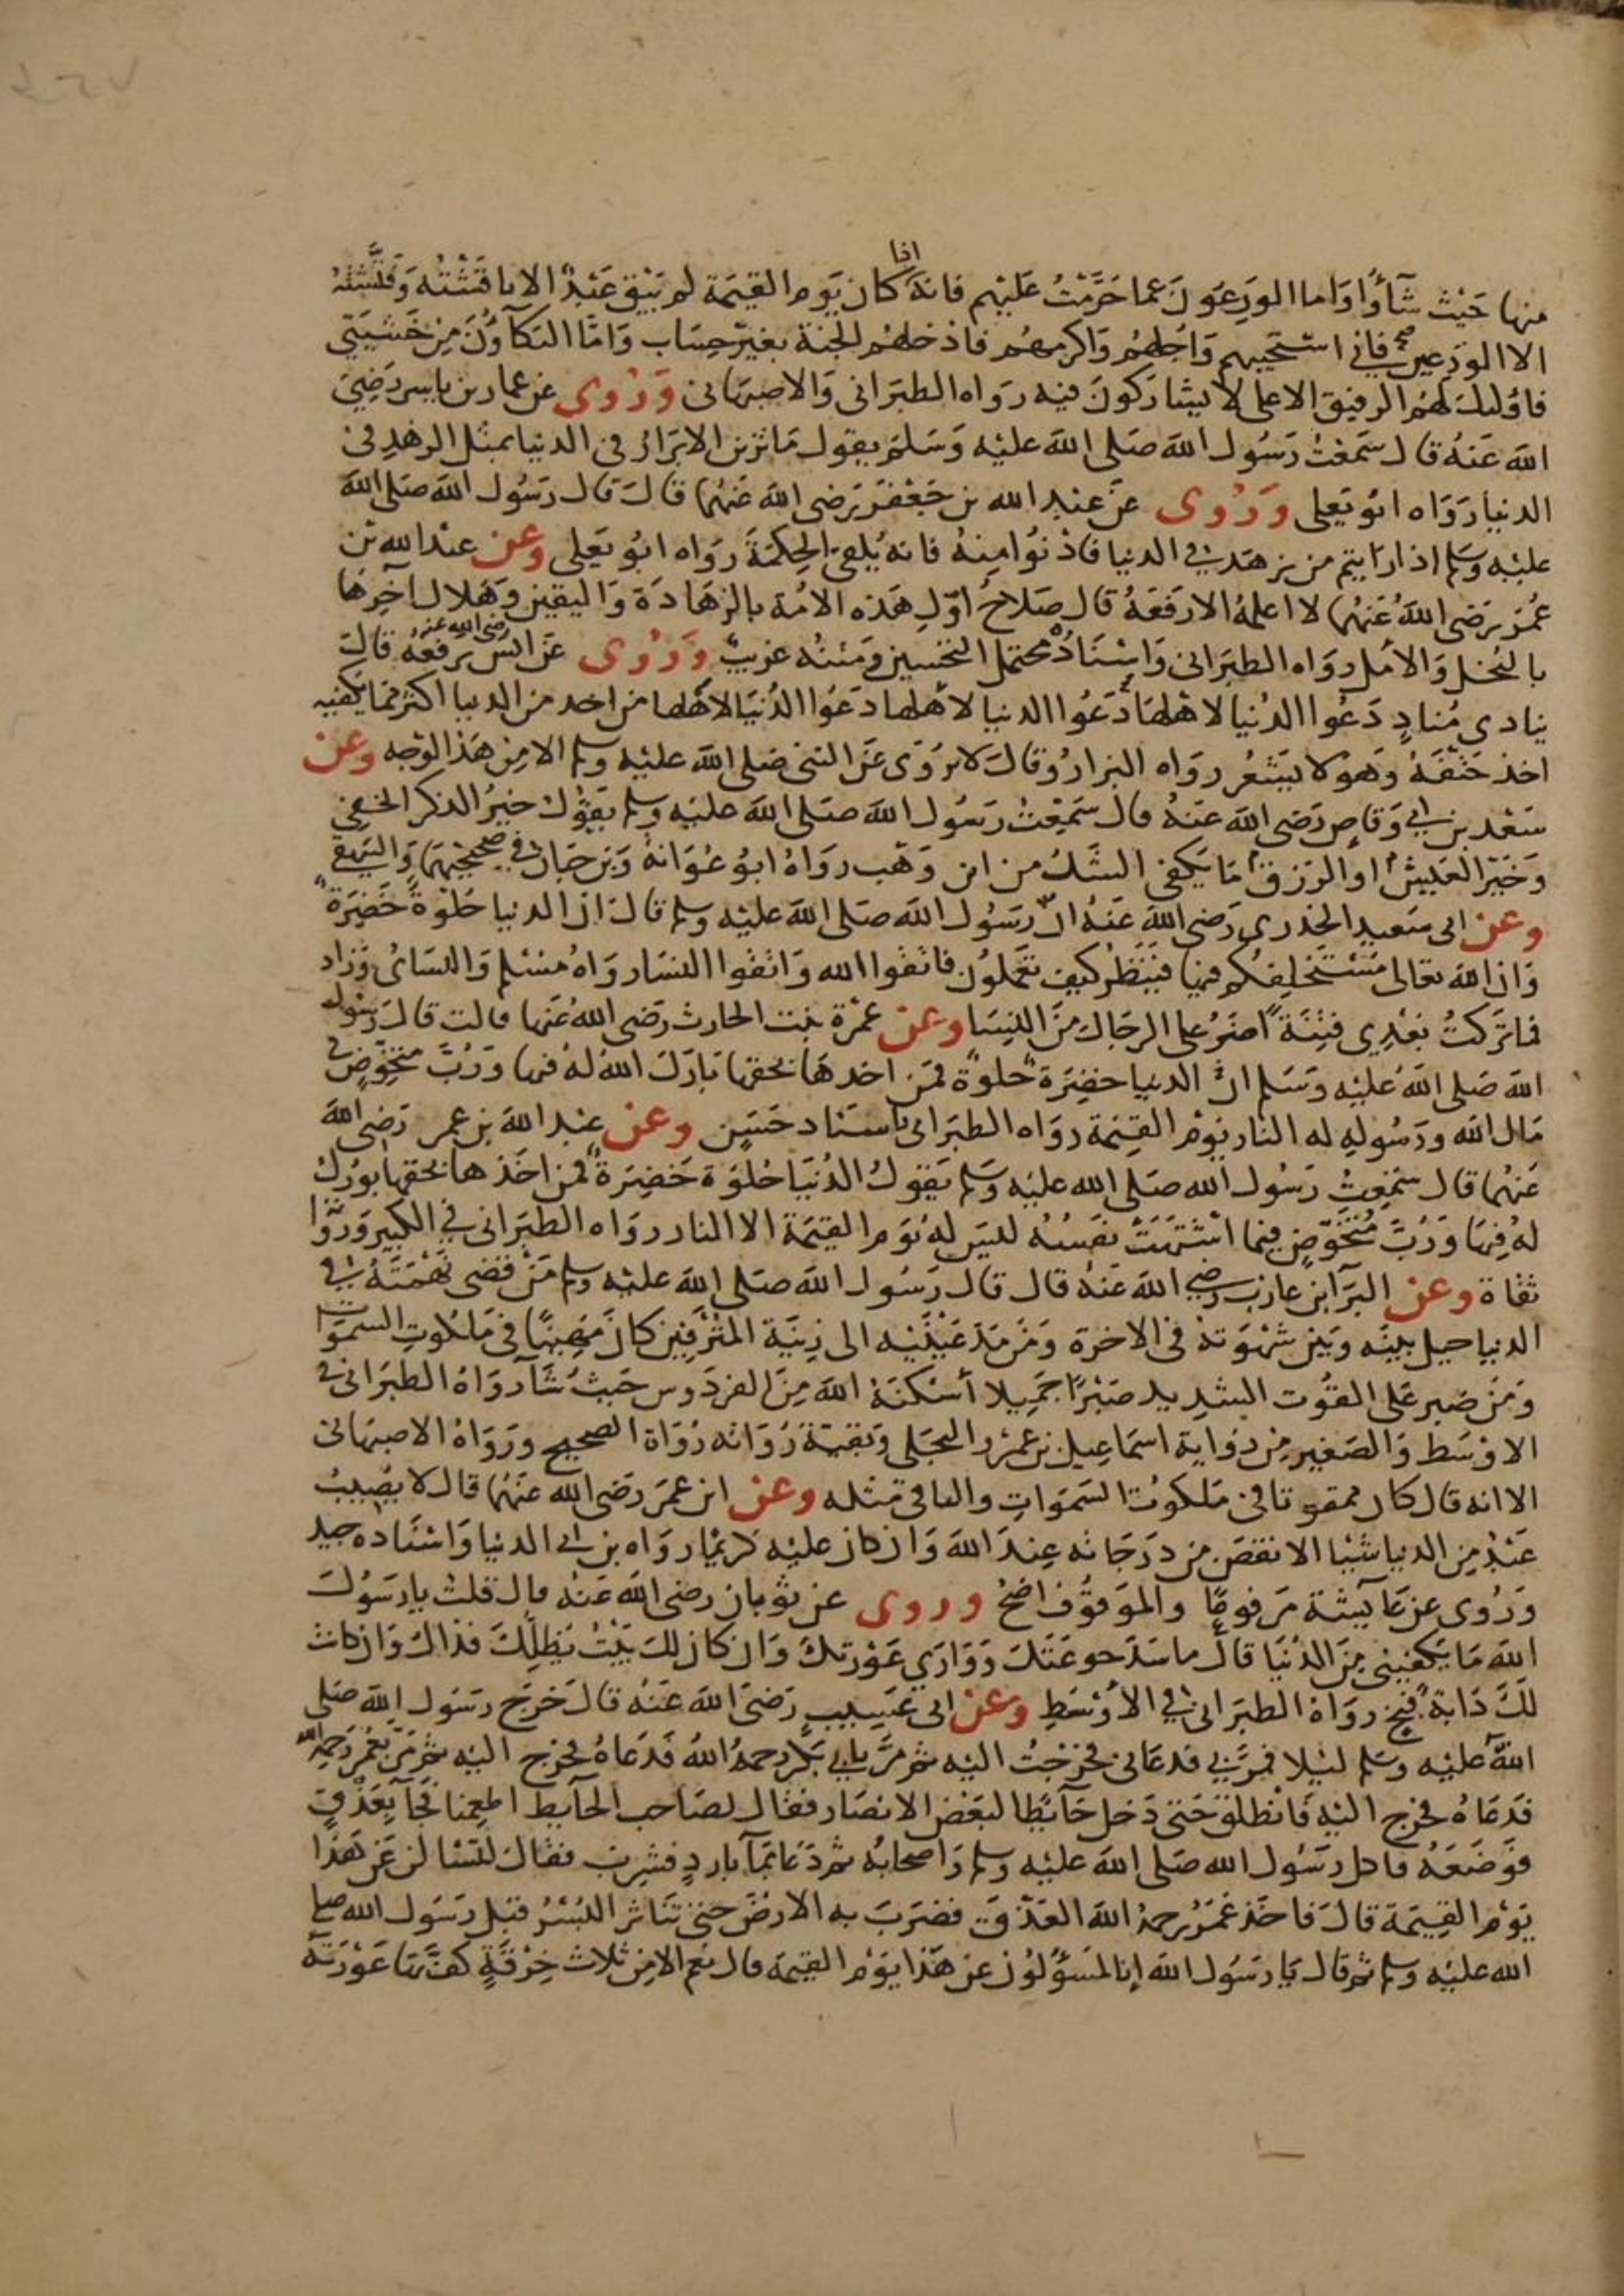 منها حيث شآؤا واما الورعون عما حرمت عليهم فانه اذا كان يوم القيمة لم يبق عبد الا ناقشته وفتشته
الا الورعين فاني استحييهم واجلهم واكرمهم فادخلهم الجنة بغير حساب واما البكآؤن من خشيتي
فاولئك لهم الرفيق الاعلى لا يشاركون فيه رواه الطبراني والاصبهاني وروى عن عمار بن ياسر رضي
الله عنه قال سمعت رسول الله صلى الله عليه وسلم يقول ما تزين الابرار في الدنيا بمثل الزهد في
الدنيا رواه ابو يعلى وروى عن عبد الله بن جعفر رضي الله عنهما قال قال رسول الله صلى الله
عليه وسلم اذا رايتم من يزهد في الدنيا فادنوا منه فانه يلقى الحكمة رواه ابو يعلى وعن عبد الله بن
عمر رضي الله عنهما لا اعلمه الا رفعه قال صلاح اول هذه الامة بالزهادة واليقين وهلاك آخرها
بالبخل والامل رواه الطبراني واسناده محتمل التحسين ومتنه غريب وروى عن انس رضي الله عنه يرفعه قال
ينادي مناد دعوا الدنيا لاهلها دعوا الدنيا لاهلها دعوا الدنيا لاهلها من اخد من الدنيا اكثر مما يكفيه
اخذ حتفه وهو لا يشعر رواه البزار وقال لا يروى عن النبي صلى الله عليه وسلم الا من هذا الوجه وعن
سعد بن ابي وقاص رضي الله عنه قال سمعت رسول الله صلى الله عليه وسلم يقول خير الذكر الخفي
وخير العيش او الرزق ما يكفي الشك من ابن وهب رواه ابو عوانة وبن حبان في صحيحيهما والبيهقي
وعن ابي سعيد الخدري رضي الله عنه ان رسول الله صلى الله عليه وسلم قال ان الدنيا حلوة خضرة
وان الله تعالى مستخلفكم فيها فينظر كيف تعملون فاتقوا الله واتقوا النسا رواه مسلم والنسائي وزاد
فما تركت بعدي فتنة اضر على الرجال من النسا وعن عمرة بنت الحارث رضي الله عنها قالت قال رسول
الله صلى الله عليه وسلم ان الدنيا خضرة حلوة فمن اخدها بحقها بارك الله له فيها ورب متخوض في
مال الله ورسوله له النار يوم القيمة رواه الطبراني باسناد حسن وعن عبد الله بن عمر رضي الله
عنهما قال سمعت رسول الله صلى الله عليه وسلم يقول الدنيا حلوة خضرة فمن اخذها بحقها بورك
له فيها ورب متخوض فيما اشتهت نفسه ليس له يوم القيمة الا النار رواه الطبراني في الكبير ورواته
ثقاة وعن البرآ بن عازب رضي الله عنه قال قال رسول الله صلى الله عليه وسلم من قضى نهمته في
الدنيا حيل بينه وبين شهوته في الاخرة ومن مد عينيه الى زينة المترفين كان مهينا في ملكوت السموات
ومن صبر على القوت الشديد صبرا جميلا أسكنه الله من الفردوس حيث شآ رواه الطبراني في
الاوسط والصغير من رواية اسماعيل بن عمرو البجلي وبقية رواته رواة الصحيح ورواه الاصبهاني
الا انه قال كان ممقوتا في ملكوت السموات والباقي مثله وعن ابن عمر رضي الله عنهما قال لا يصيب
عبد من الدنيا شيا الا نقص من درجاته عند الله وان كان عليه كريما رواه بن ابي الدنيا واسناده جيد
وروى عن عآيشة مرفوعا والموقوف اضح وروى عن ثوبان رضي الله عنه قال قلت يا رسول
الله ما يكفيني من الدنيا قال ما سد جوعتك ووارى عورتك وان كان لك بيت يظلك فذاك وان كانت
لك دابة فبخ رواه الطبراني في الاوسط وعن ابي عسيب رضي الله عنه قال خرج رسول الله صلى
الله عليه وسلم ليلا فمر بي فدعاني فخرجت اليه ثم مر بابي بكر رحمه الله فدعاه فخرج اليه ثم مر بعمر رحمه الله
فدعاه فخرج اليه فانطلق حتى دخل حآئطا لبعض الانصار فقال لصاحب الحآيط اطعمنا فجآ بعذق
فوضعه فاكل رسول الله صلى الله عليه وسلم واصحابه ثم دعا بمآ بارد فشرب فقال لتسألن عن هذا
يوم القيمة قال فاخذ عمر رحمه الله العذق فضرب به الارض حتى تناثر البسر قبل رسول الله صلى
الله عليه وسلم ثم قال يا رسول الله إنا لمسؤلون عن هذا يوم القيمة قال نعم الا من ثلاث خرقة كف بها عورته